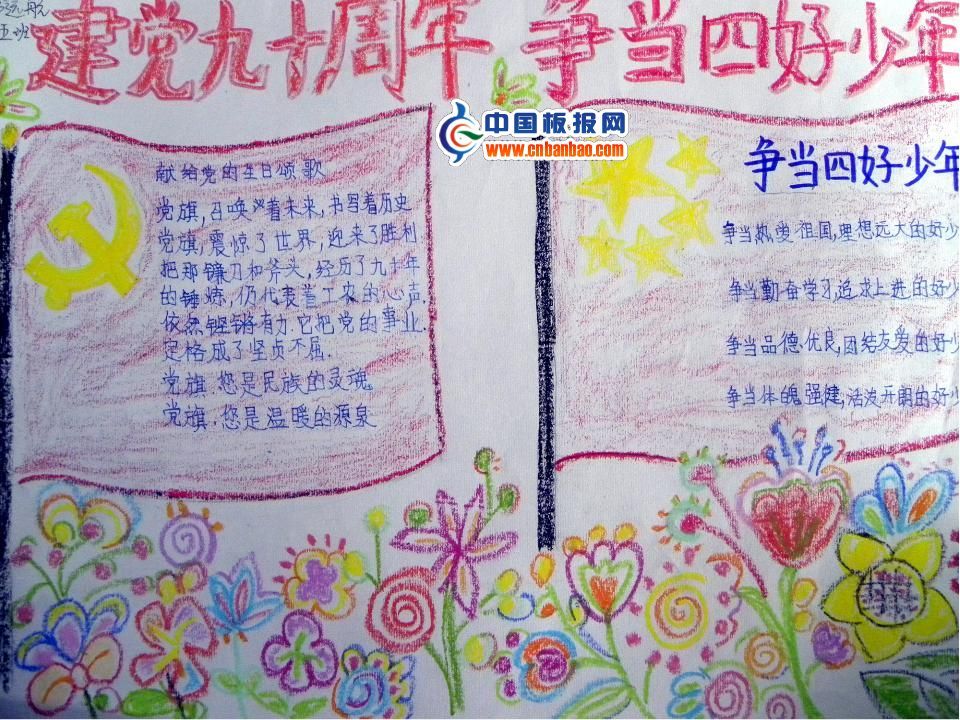 远航
五班
建党九十周年 争当四好少年
中国板报网
www.cnbanbao.com
献给党的生日颂歌
党旗,召唤着未来,书写着历史
党旗,震惊了世界,迎来了胜利
把那镰刀和斧头,经历了九十年
的锤炼,仍代表着工农的心声.
依然铿锵有力.它把党的事业.
定格成了坚贞不屈.
党旗.您是民族的灵魂
党旗.您是温暖的源泉
争当四好少年
争当热爱祖国,理想远大的好少
争当勤奋学习,追求上进的好少
争当品德优良,团结友爱的好少
争当体魄强健,活泼开朗的好少